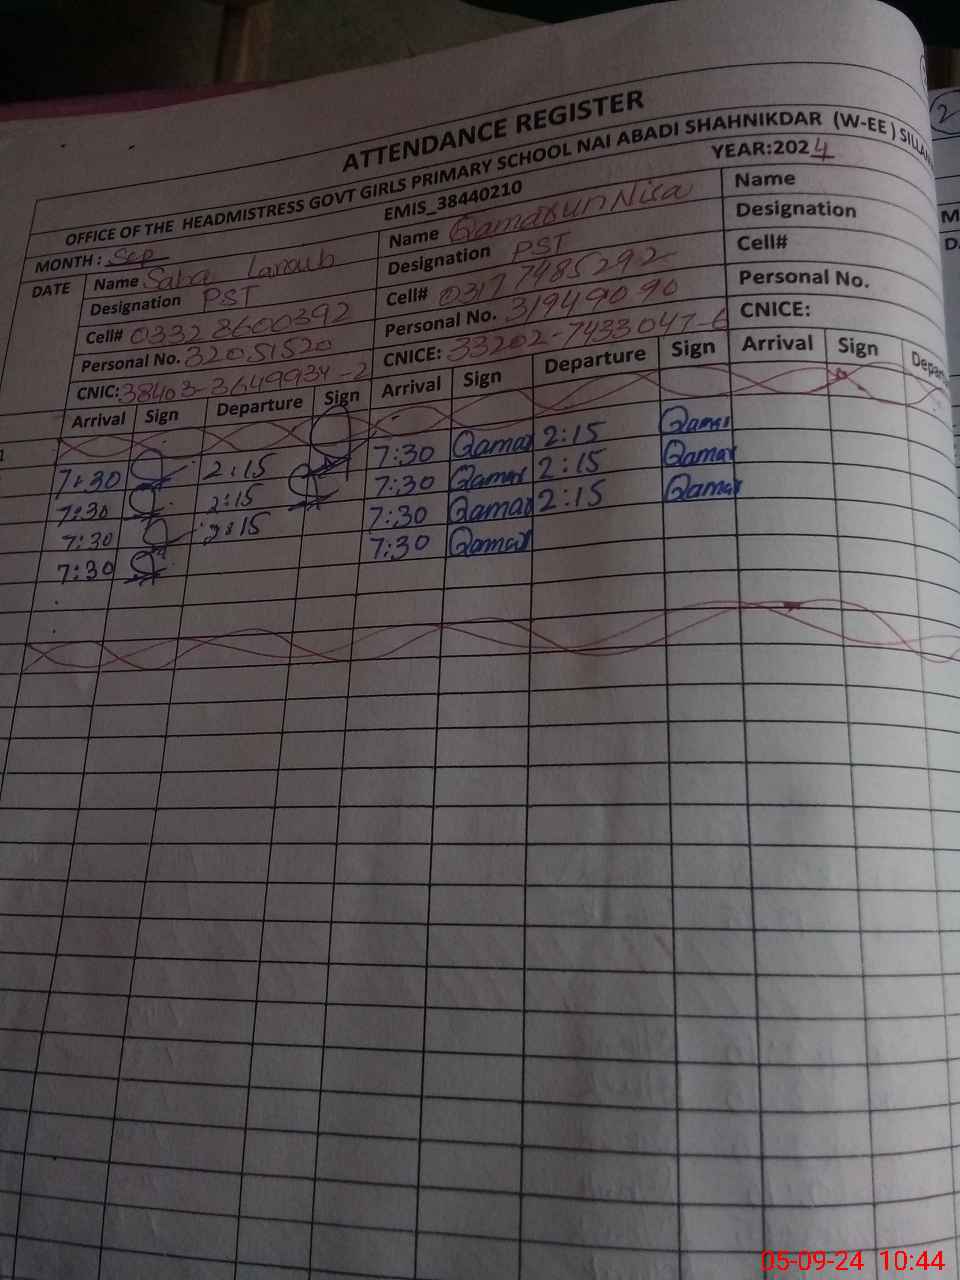 ATTENDANCE REGISTER
OFFICE OF THE HEADMISTRESS GOVT GIRLS PRIMARY SCHOOL NAI ABADI SHAHNIKDAR (W-EE ) SILLAN
EMIS_38440210
MONTH : Sep YEAR:2024
DATE
Name Saba
Designation PST
Cell# 03328600392
Personal No. 32051520
CNIC:38403-3649934-2
Name Qamar un Nisa
Designation PST
Cell# 03177485292
Personal No. 31949090
CNICE: 33202-7433047-6
Name
Designation
Cell#
Personal No.
CNICE:
Arrival Sign Departure Sign Arrival Sign Departure Sign Arrival Sign Depar
7:30 2:15 7:30 Qamar 2:15 Qamar
7:30 2:15 7:30 Qamar 2:15 Qamar
7:30 2:15 7:30 Qamar 2:15 Qamar
7:30 7:30 Qamar
2
M
D
05-09-24 10:44